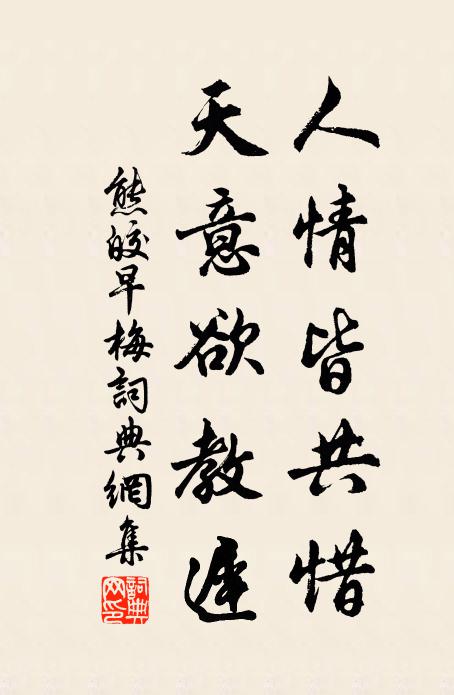 人情皆共惜
天意欲教遲
熊皎早梅詞典網集
詞典網印